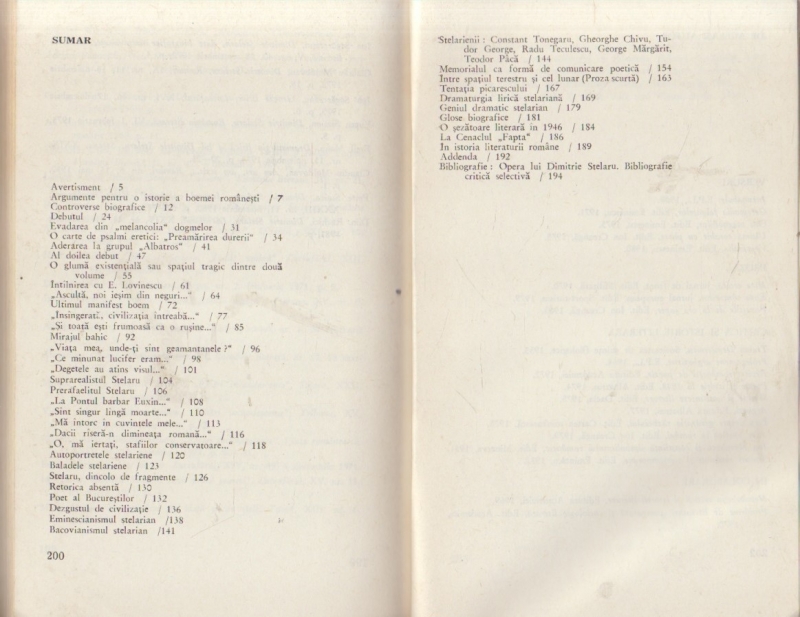 SUMAR
Avertisment / 5
Argumente pentru o istorie a boemei românești / 7
Controverse biografice / 12
Debutul / 24
Evadarea din „melancolia“ dogmelor / 31
O carte de psalmi eretici: „Preamărirea durerii“ / 34
Aderarea la grupul „Albatros“ / 41
Al doilea debut / 47
O glumă existențială sau spațiul tragic dintre două
volume / 55
Intîlnirea cu E. Lovinescu / 61
„Ascultă, noi ieșim din neguri...“ / 64
Ultimul manifest boem / 72
„Insingerată, civilizația intreabă...“ / 77
„Și toată ești frumoasă ca o rușine...“ / 85
Mirajul bahic / 92
„Viața mea, unde-ți sint geamantanele?“ / 96
„Ce minunat lucifer eram...“ / 98
„Degetele au atins visul...“ / 101
Suprarealistul Stelaru / 104
Prerafaelitul Stelaru / 106
„La Pontul barbar Euxin...“ / 108
„Sint singur lingă moarte...“ / 110
„Mă intorc in cuvintele mele...“ / 113
„Dacii riseră-n dimineața romană...“ / 116
„O, mă iertați, stafiilor conservatoare...“ / 118
Autoportretele stelariene / 120
Baladele stelariene / 123
Stelaru, dincolo de fragmente / 126
Retorica absentă / 130
Poet al Bucureștilor / 132
Dezgustul de civilizație / 136
Eminescianismul stelarian /138
Bacovianismul stelarian /141
200
Stelarienii : Constant Tonegaru, Gheorghe Chivu, Tu-
dor George, Radu Teculescu, George Mărgărit,
Teodor Pâcă / 144
Memorialul ca formă de comunicare poetică / 154
Intre spațiul terestru și cel lunar (Proza scurtă) / 163
Tentația picarescului / 167
Dramaturgia lirică stelariană / 169
Geniul dramatic stelarian / 179
Glose biografice / 181
O șezătoare literară in 1946 / 184
La Cenaclul „Fapta“ / 186
In istoria literaturii române / 189
Addenda / 192
Bibliografie : Opera lui Dimitrie Stelaru. Bibliografie
critică selectivă / 194